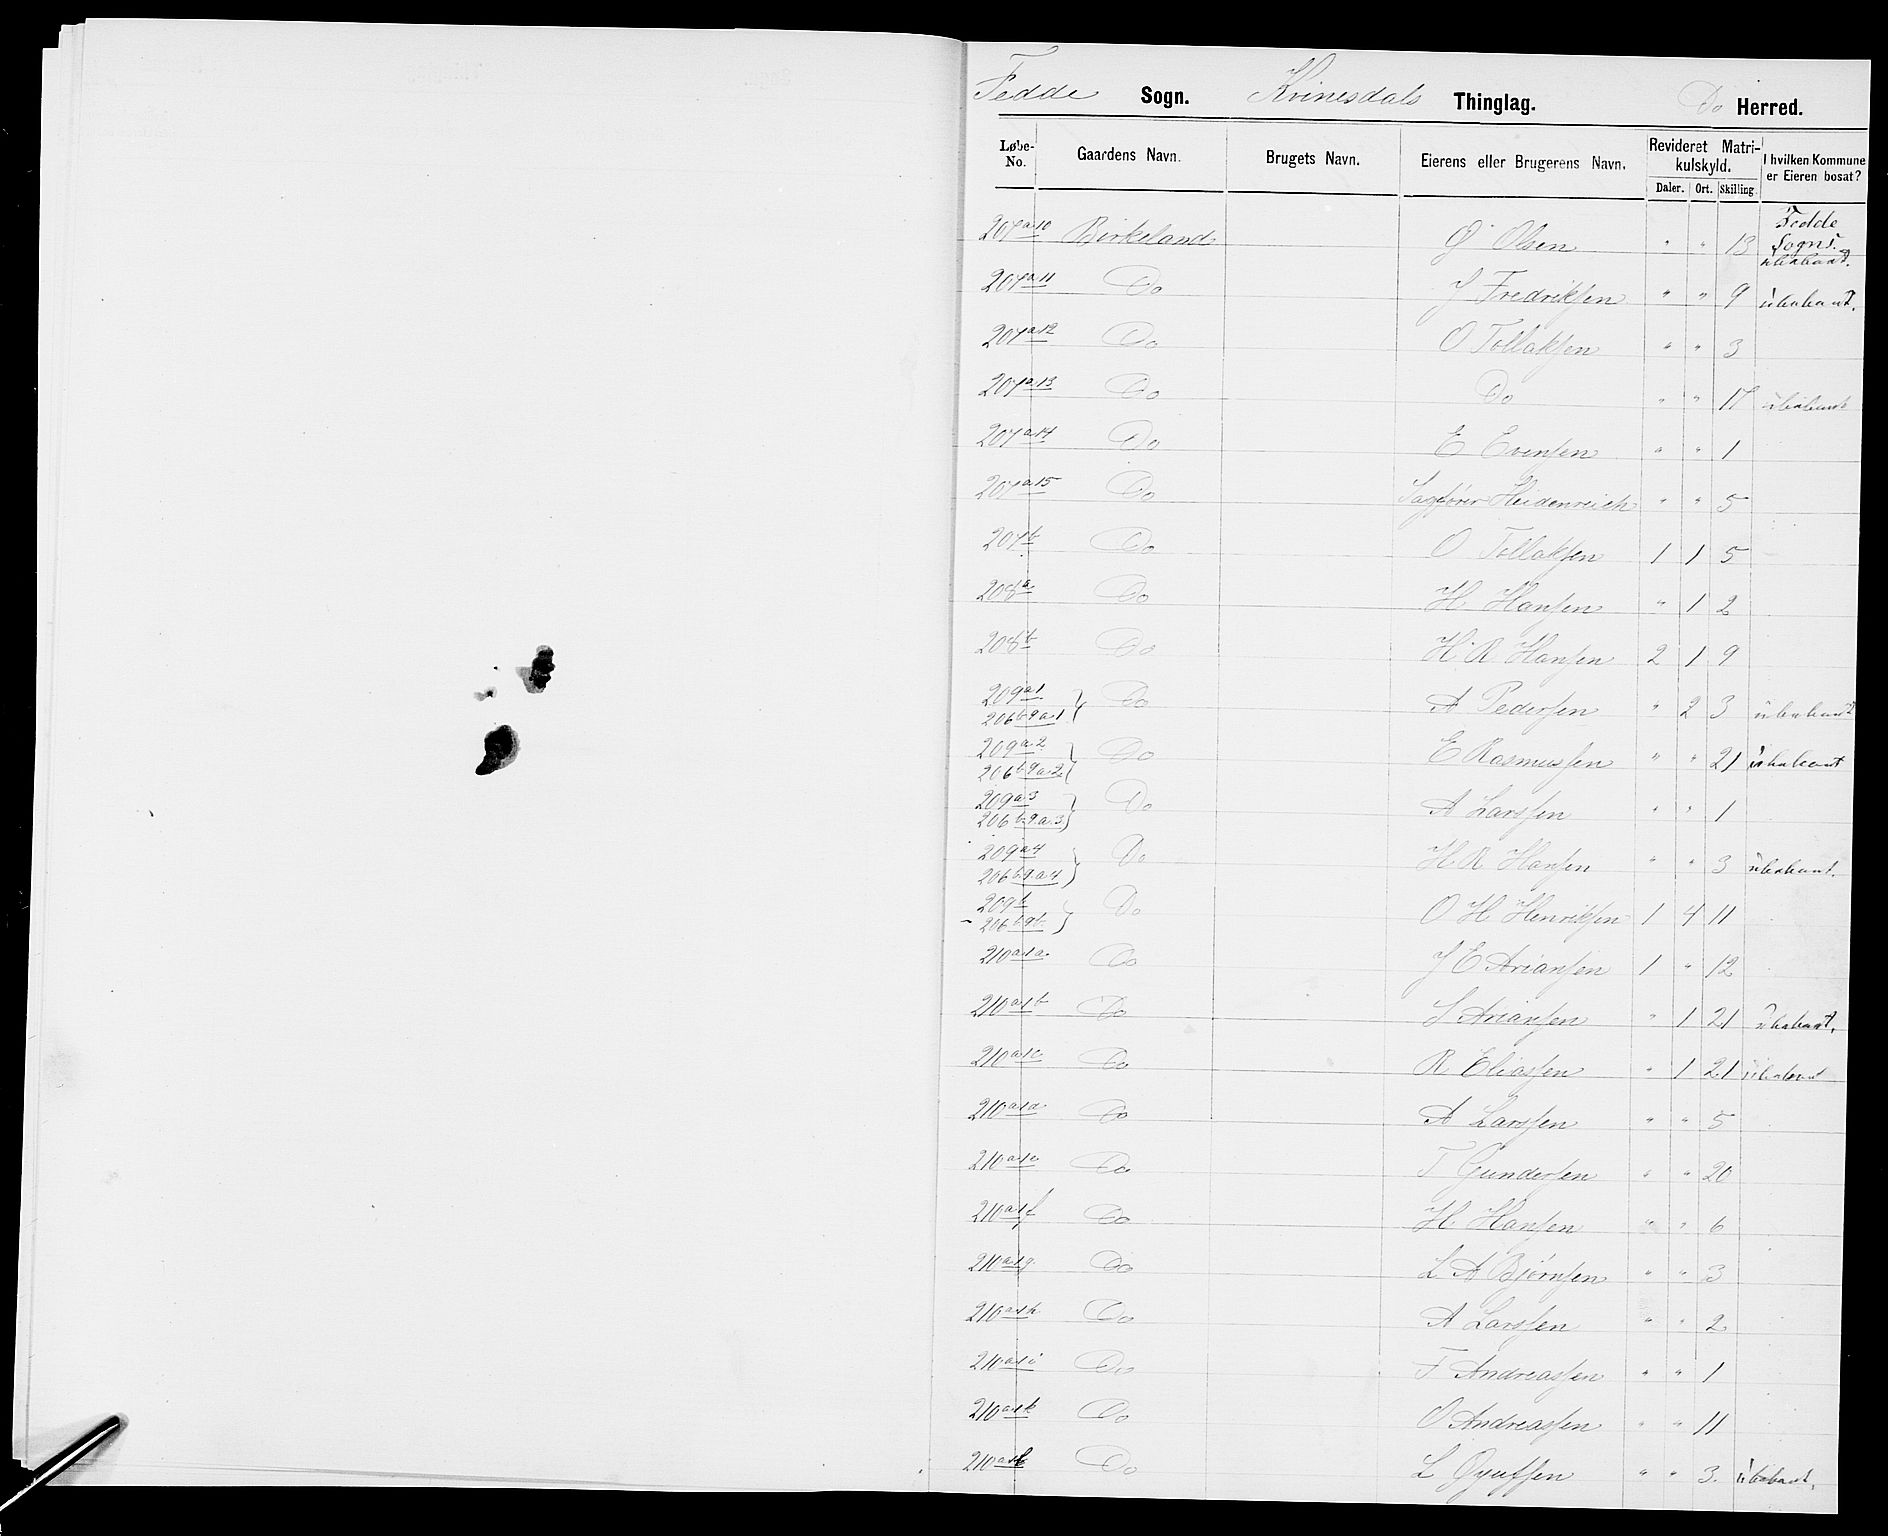 Fedde Sogn. Kvinesdals Thinglag. Do Herred.
Løbe-No. Gaardens Navn. Brugets Navn. Eierens eller Brugerens Navn. Revideret Matrikulskyld. Daler. Ort. Skilling. I hvilken Kommune er Eieren bosat?
207 a 10 Birkeland Ø Olsen " " 13 Fedde Sogn. ubebaat.
207 a 11 Do J Fredriksen " " 9 ubebaat.
207 a 12 Do O Tollaksen " " 3
207 a 13 Do Do " " 17 ubebaat
207 a 14 Do E Evensen " " 1
207 a 15 Do Sagfører Heidenreich " " 5
207 b Do O Tollaksen 1 1 5
208 a Do H Hansen " 1 2
208 b Do H R Hansen 2 1 9
209 a 1 206 b 9 a 1 } Do A Pedersen " 2 3 ubebaat
209 a 2 206 b 9 a 2 } Do E Rasmussen " " 21 ubebaat
209 a 3 206 b 9 a 3 } Do A Larssen " " 1
209 a 4 206 b 9 a 4 } Do H R Hansen " " 3 ubebaat.
209 b 206 b 9 b } Do O H Henriksen 1 4 11
210 a 1 a Do J E Ariansen 1 " 12
210 a 1 b Do S Ariansen " 1 21 ubebaat.
210 a 1 c Do R Eliassen " 1 21 ubebaat
210 a 1 d Do A Larssen " " 5
210 a 1 e Do T Gundersen " " 20
210 a 1 f Do H Hansen " " 6
210 a 1 g Do L A Bjørnsen " " 3
210 a 1 h Do A Larssen " " 2
210 a 1 i Do F Andreassen " " 1
210 a 1 k Do O Andreassen " " 11
210 a 1 l Do L " " 3. ubebaat.